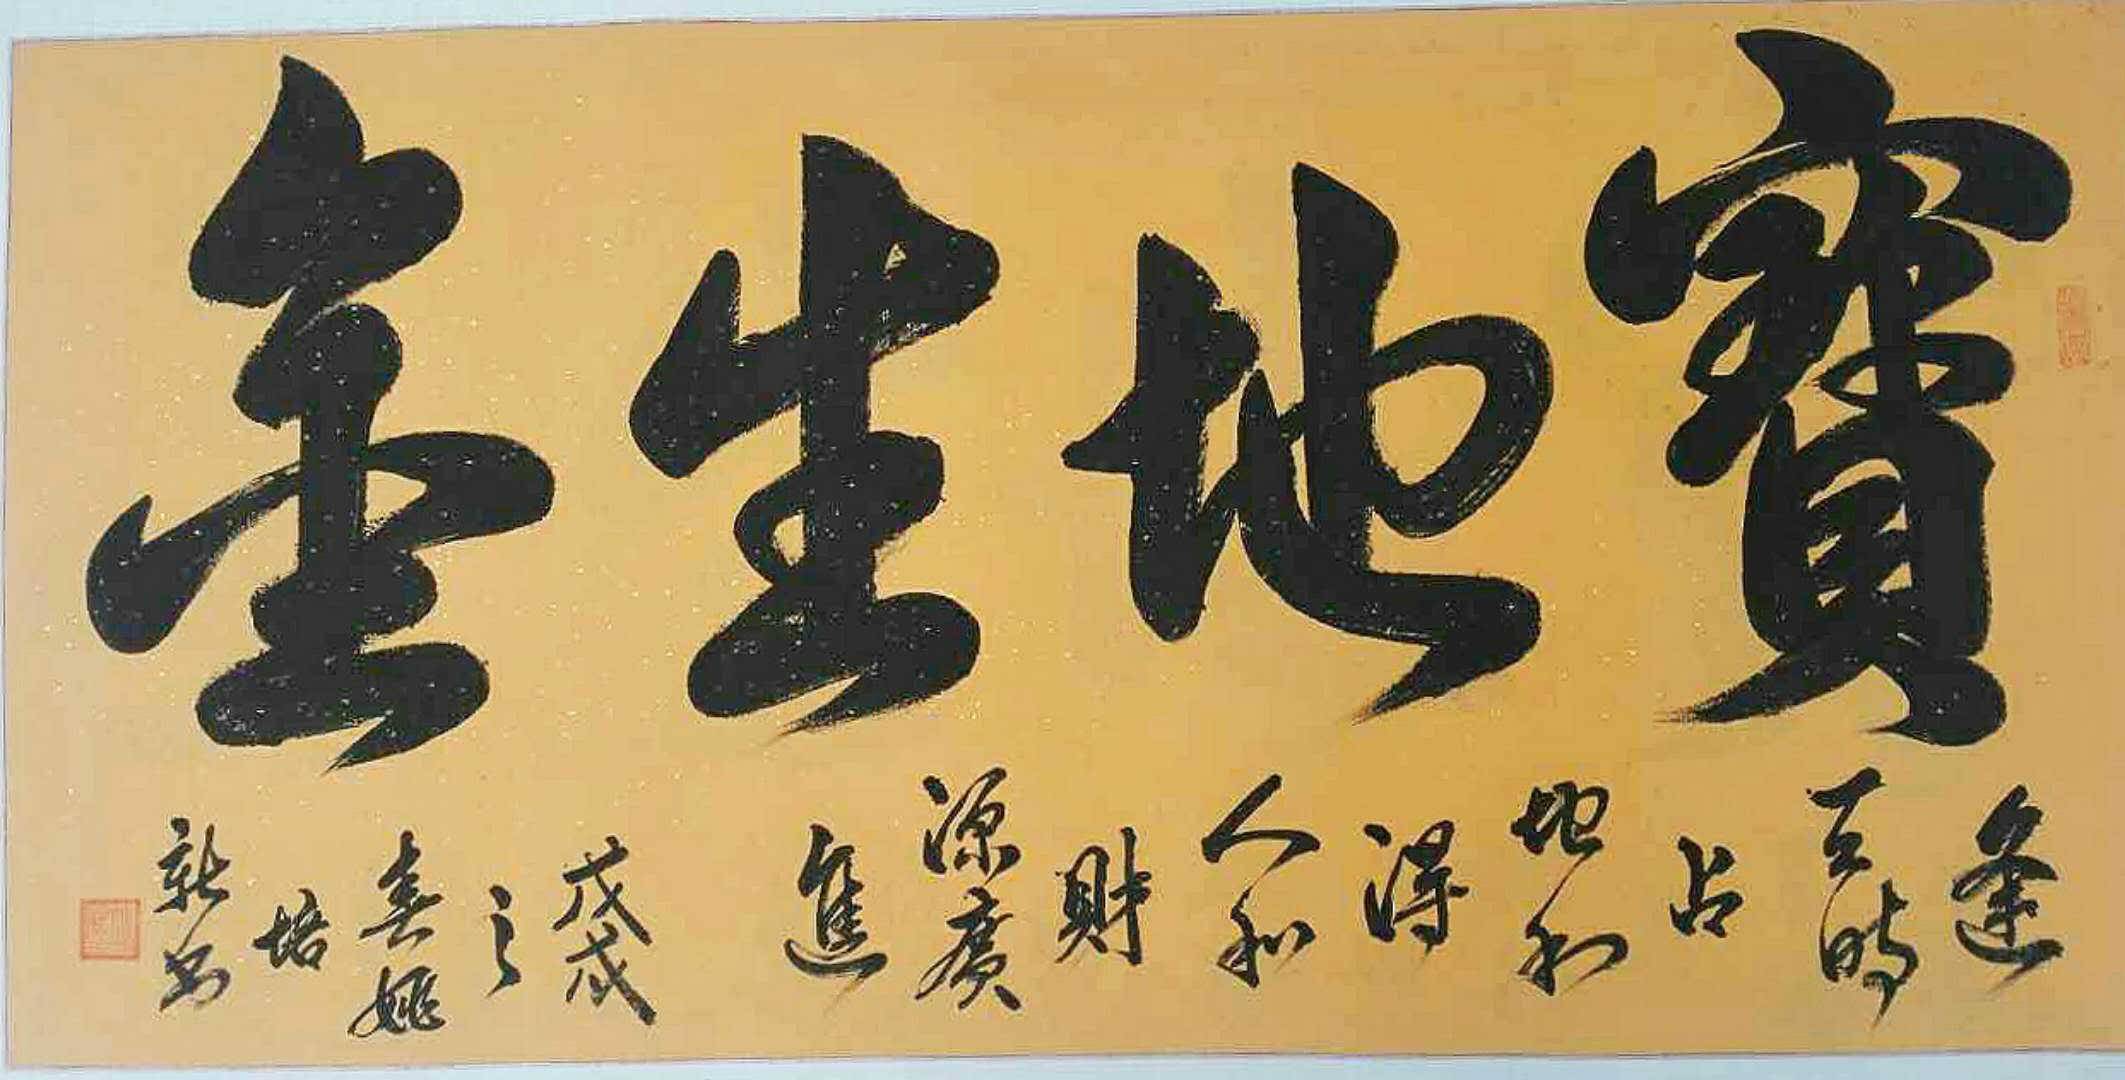 寶地生金
逢天時占地利得人和財源廣進
戊戌之春姚培新書